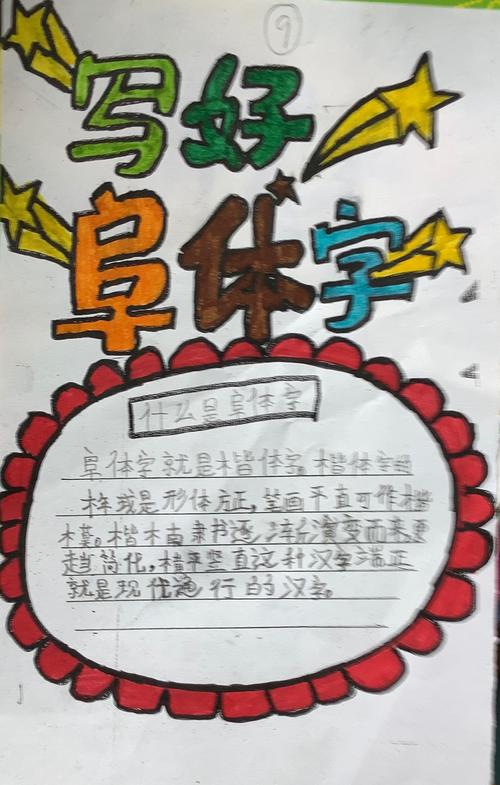 9
写好
阜体字
什么是阜体字
阜体字就是楷体字。楷体字
是形体方正,笔画平直可作楷
模。楷 隶书逐渐演变而来更
趋简化,横平竖直这种汉字端正
就是现代通行的汉字。